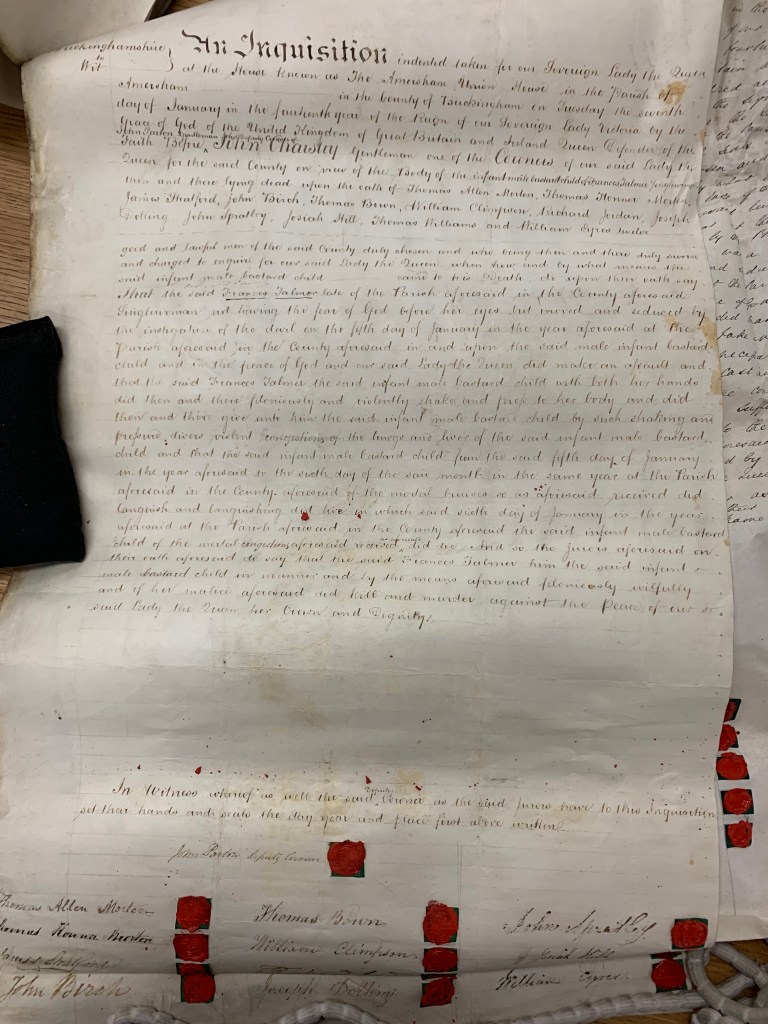 Buckinghamshire
to
Wit
An Inquisition indented taken for our Sovereign Lady the Queen
at the House known as The Amersham Union House in the Parish of
Amersham in the County of Buckingham on Tuesday the seventh
day of January in the fourteenth year of the Reign of our Sovereign Lady Victoria by the
Grace of God of the United Kingdom of Great Britain and Ireland Queen Defender of the
John Parton Gentleman deputy of
Faith Before John Charsley Gentleman one of the Coroners of our said Lady the
Queen for the said County on view of the Body of the infant male bastard child of Frances Talmer Singlewoman
then and there lying dead upon the oath of Thomas Allen Morten, Thomas Honnor Morten
James Stratford, John Birch, Thomas Bown, William Climpson, Richard Jordan, Joseph
Dolling John Spratley, Josiah Hill, Thomas Williams and William Eyres twelve
good and lawful men of the said County duly chosen and who being then and there duly sworn
and charged to enquire for our said Lady the Queen when how and by what means the
said infant male bastard child came to his Death, do upon their oath say
That the said Frances Talmer late of the Parish aforesaid in the County aforesaid
Singlewoman not having the fear of God before her eyes but moved and seduced by
the instigation of the devil on the fifth day of January in the year aforesaid at the
Parish aforesaid in the County aforesaid in and upon the said male infant bastard
child and in the peace of God and our said Lady the Queen did make an assault and
that the said Frances Talmer the said infant male bastard child with both her hands
did then and there feloniously and violently shake and press to her body and did
then and there give unto him the said infant male bastard child by such shaking and
pressure divers violent congestions of the lungs and liver of the said infant male bastard
child and that the said infant male bastard child from the said fifth day of January
in the year aforesaid to the sixth day of the said month in the same year at the Parish
aforesaid in the County aforesaid of the mortal bruises so as aforesaid received did
languish and languishing did live on which said sixth day of January in the year
aforesaid at the Parish aforesaid in the County aforesaid the said infant male bastard
child of the mortal congestions aforesaid received did die And so the Jurors aforesaid on
their oath aforesaid do say that the said Frances Talmer him the said infant
male bastard child in manner and by the means aforesaid feloniously wilfully
and of her malice aforesaid did kill and murder against the Peace of our
said Lady the Queen her Crown and Dignity
In Witness whereof as well the said Deputy Coroner as the said Jurors have to this Inquisition
set their hands and seals the day year and place first above written
John Parton Deputy Coroner
Thomas Allen Morten
Thomas Honnor Morten
James Stratford
John Birch
Thomas Bown
William Climpson
Joseph Dolling
John Spratley
Josiah Hill
William Eyres